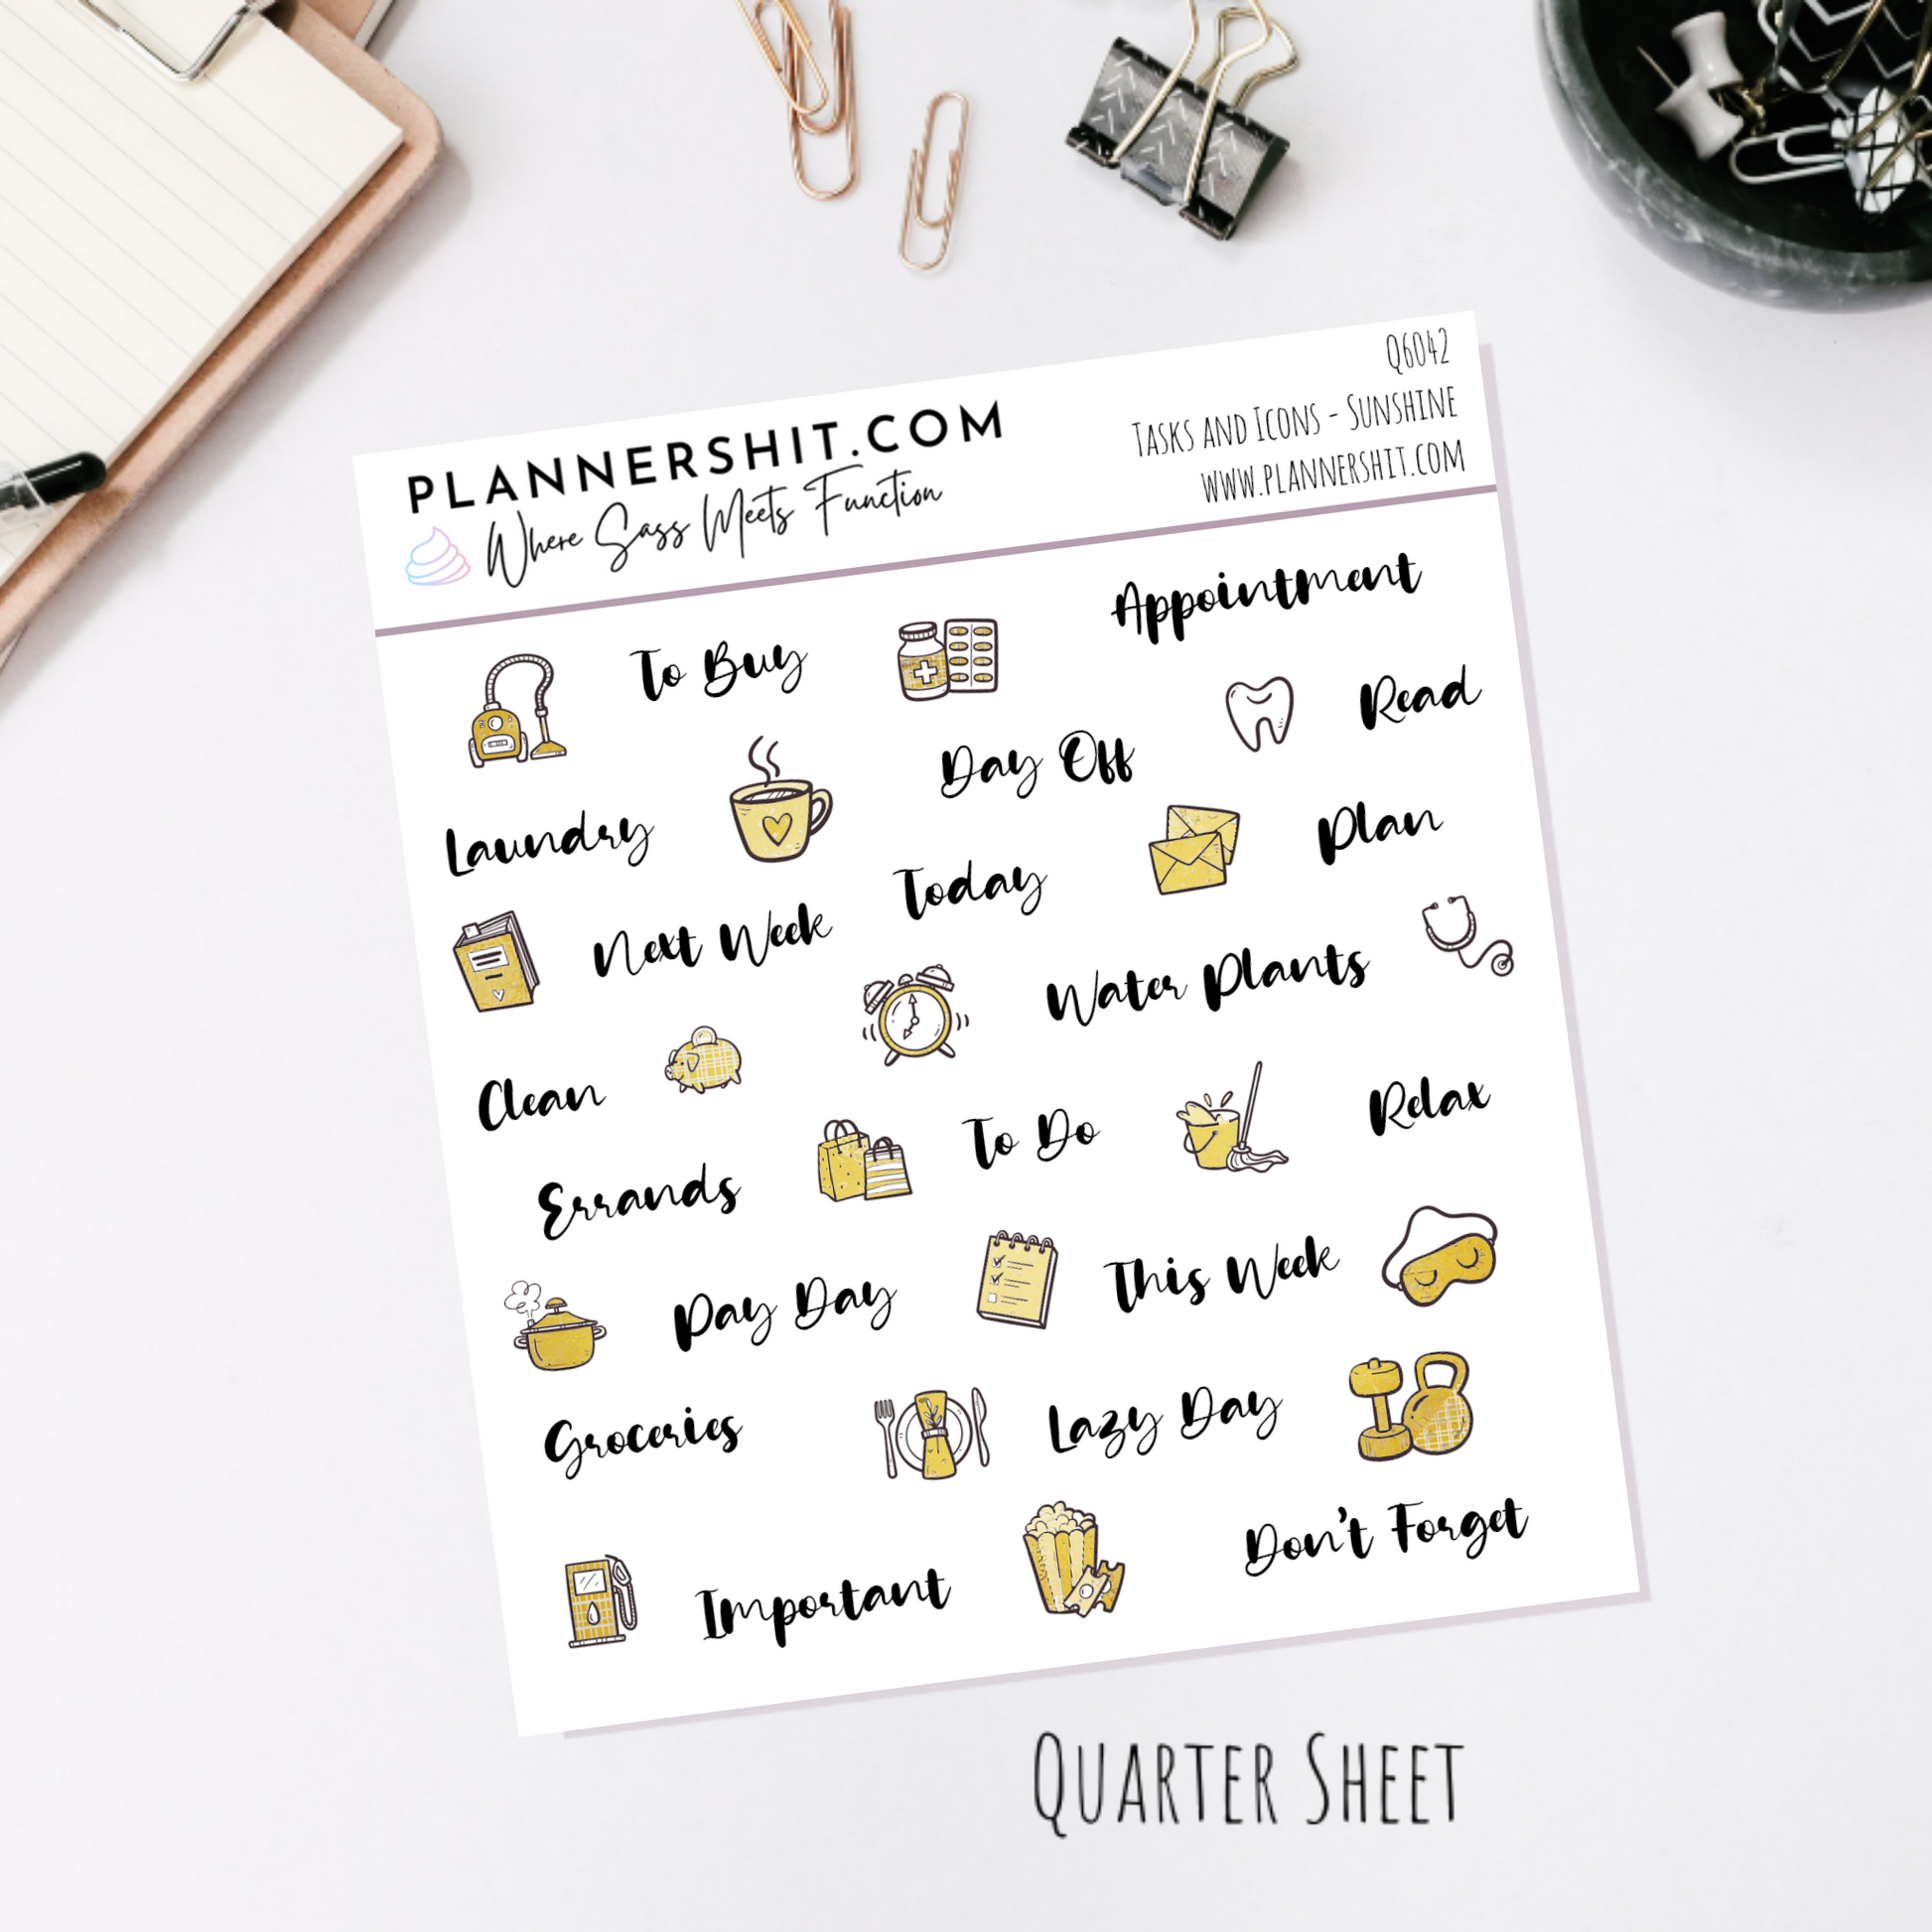 Q6042
PLANNERSHIT.COM
Tasks and Icons - Sunshine
Where Sass Meets Function
www.plannershit.com
To Buy
Appointment
Read
Day Off
Laundry
Plan
Today
Next Week
Water Plants
Clean
To Do
Relax
Errands
This Week
Pay Day
Lazy Day
Groceries
Don't Forget
Important
Quarter Sheet